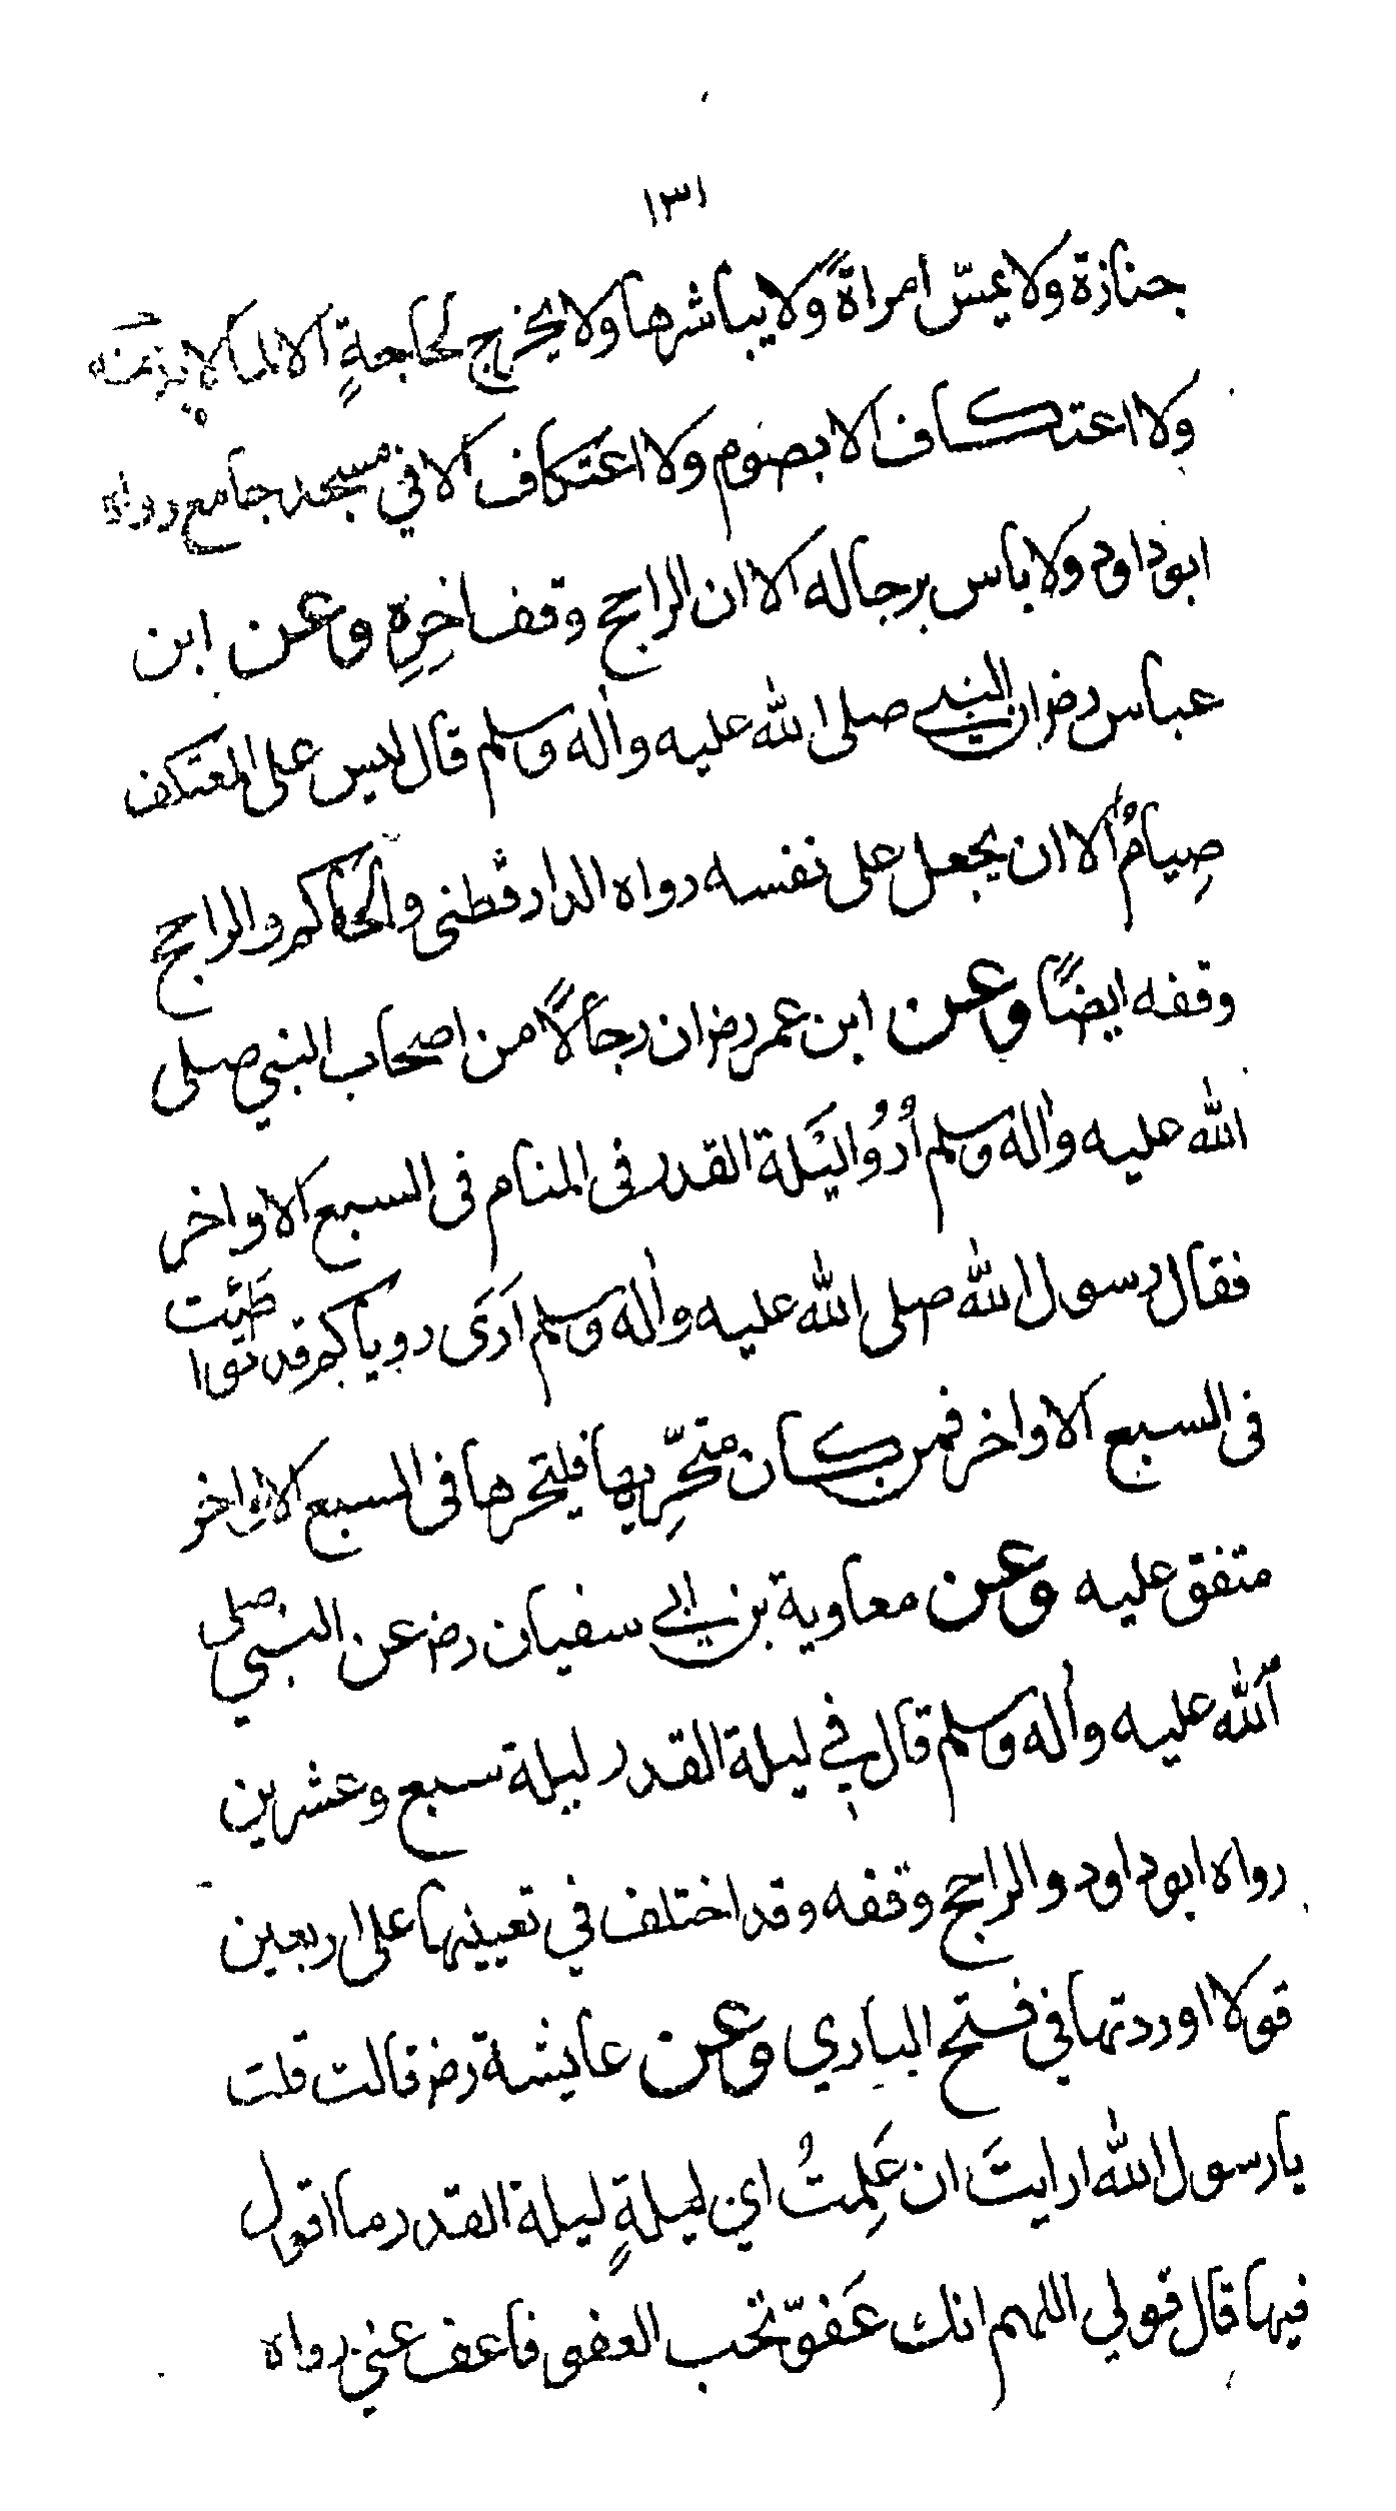 ١٣١
جنازة ولا يمسّ امراةً ولا يباشرها ولا يخرج لحاجةٍ الا لما لا بد منه
ولا اعتكاف الا بصوم ولا اعتكاف الا في مسجد جامع رواه
ابو داود ولا باس برجاله الا ان الراجح وقف اخِرِه وعن ابن
عباس رضـ ان النبي صلى الله عليه واله وسلم قال ليس على المعتكف
صِيامٌ الا ان يجعل على نفسه رواه الدارقطنى والحاكم والراجح
وقفه ايضًا وعن ابن عمر رضـ ان رجالًا من اصحاب النبي صلى
الله عليه واله وسلم أُرُوا ليَلة القدر فى المنام فى السبع الاواخر
فقال رسول الله صلى الله عليه واله وسلم ارَى روياكم قد تواطَئت
فى السبع الاواخر فمن كان متحّرِيها فليتحرها فى السبع الاواخر
متفق عليه وعن معاوية بن ابي سفيان رضـ عن النبي صلى
الله عليه واله وسلم قال في ليلة القدر ليلة سبع وعشرين
رواه ابو داود والراجح وقفه وقد اختلف في تعيينها على اربعين
قولا اوردتها في فتح الباري وعن عايشة رضـ قالت قلت
يا رسول الله ارايتَ ان عَلِمتُ اي ليلةٍ ليلة القدر ما اقول
فيها قال قولي اللهم انك عَفوّ تحب العفو فاعف عني رواه